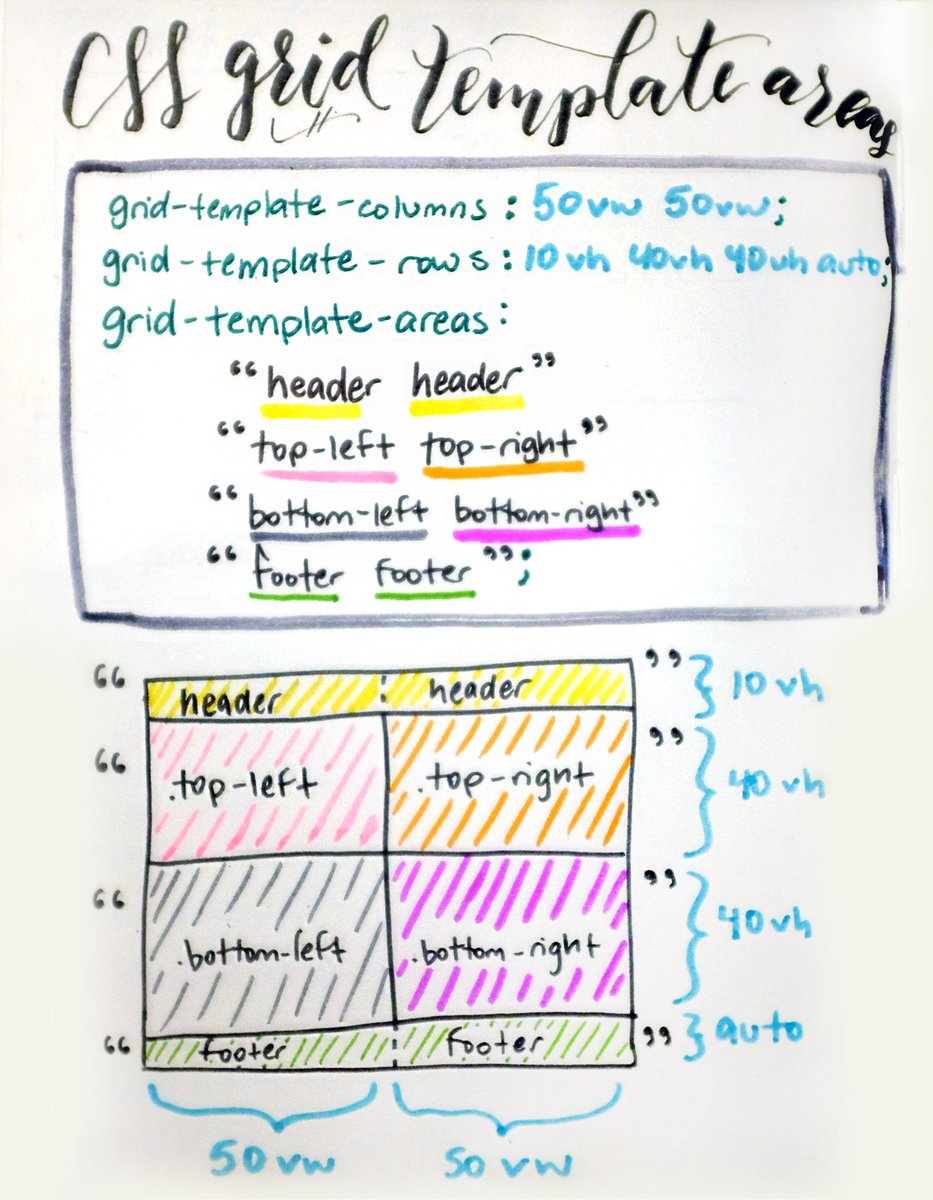 CSS grid template areas
grid-template-columns: 50vw 50vw;
grid-template-rows: 10vh 40vh 40vh auto;
grid-template-areas:
“header header”
“top-left top-right”
“bottom-left bottom-right”
“footer footer”;
“ header header ” 10vh
“ .top-left .top-right ” 40vh
“ .bottom-left .bottom-right ” 40vh
“ footer footer ” auto
50vw 50vw